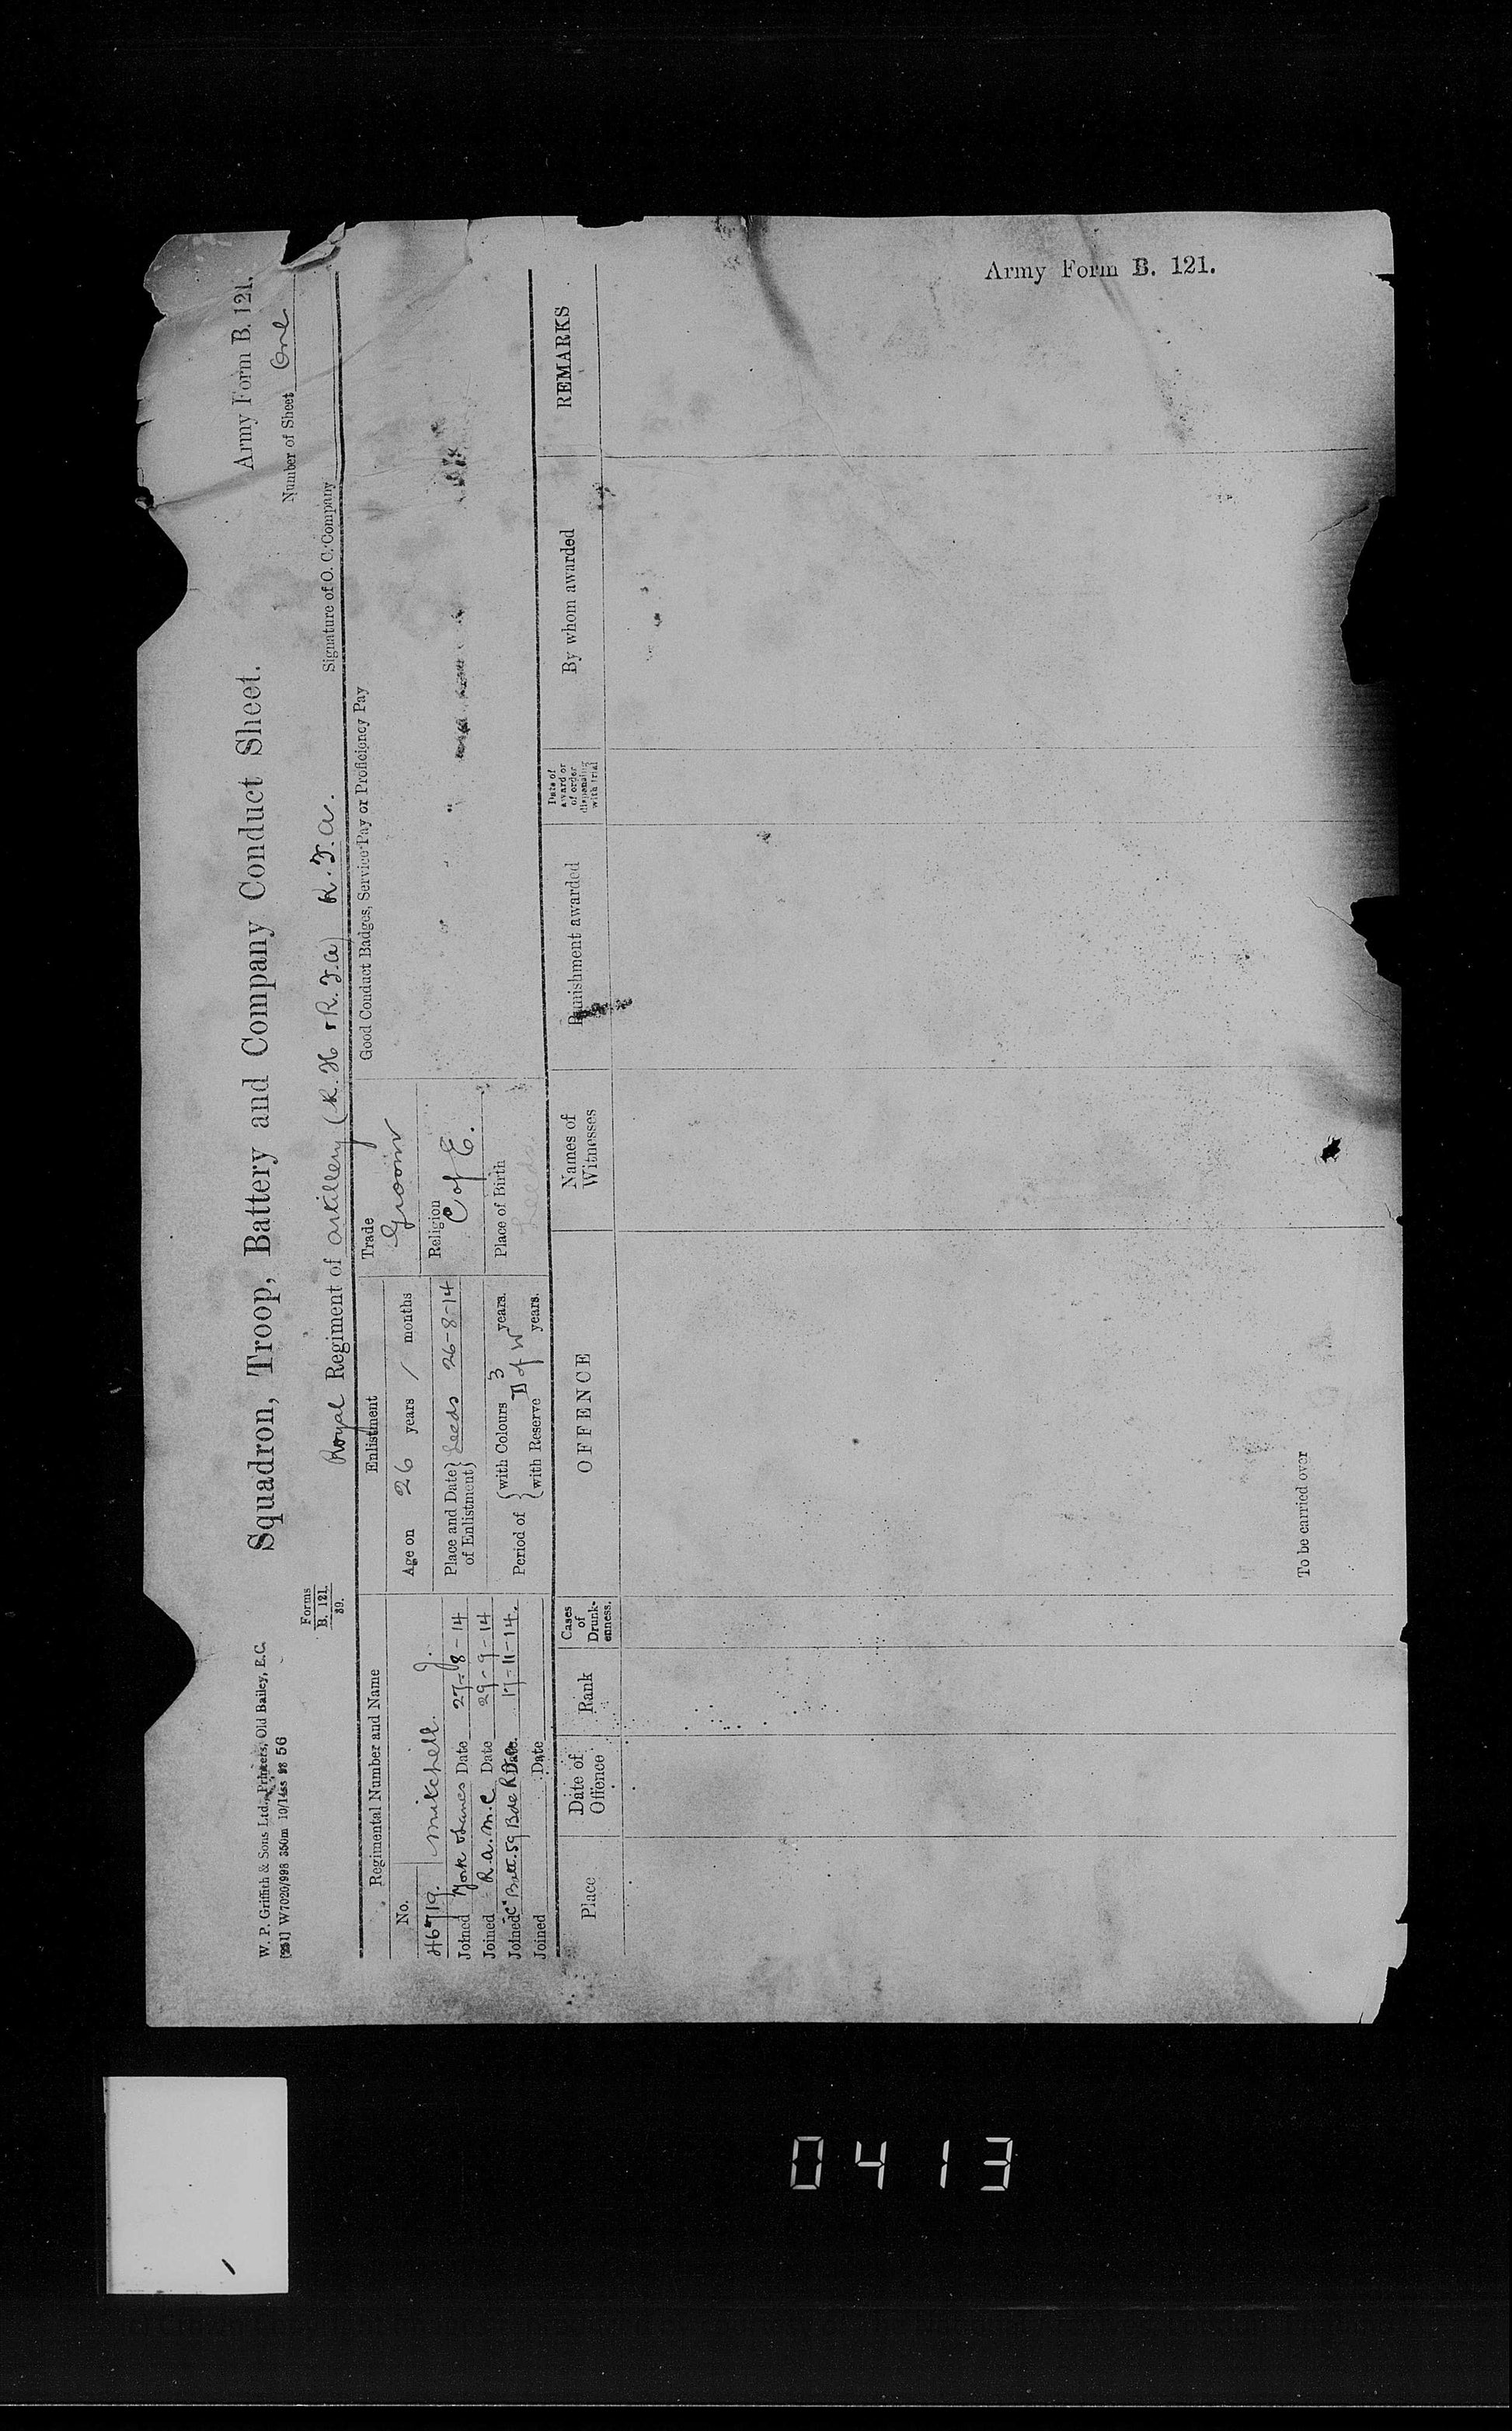 W. P. Griffith & Sons Ltd., Printers, Old Bailey, E.C.
[251] W7020/998 350m 10/14ss 98 56
Forms
B. 121.
39.
Squadron, Troop, Battery and Company Conduct Sheet.
Army Form B. 121.
Number of Sheet One
Royal Regiment of artillery (R.H & R.F.a) R.F.a.
Signature of O. C. Company
Regimental Number and Name
No.
46719. Mitchell. J.
Joined Date 27-8-14
Joined R.a.m.C Date 29-9-14
Joined "C" Batt. 59 Bde R Date 17-11-14.
Joined Date
Enlistment
Age on 26 years / months
Place and Date of Enlistment } Leeds 26-8-14
Period of { with Colours 3 years.
D of W
with Reserve years.
Trade
Groom
Religion
C of E.
Place of Birth
Leeds
Good Conduct Badges, Service Pay or Proficiency Pay
Place
Date of Offence
Rank
Cases of Drunkenness.
OFFENCE
Names of Witnesses
Punishment awarded
Date of award or of order dispensing with trial
By whom awarded
REMARKS
To be carried over
Army Form B. 121.
0413